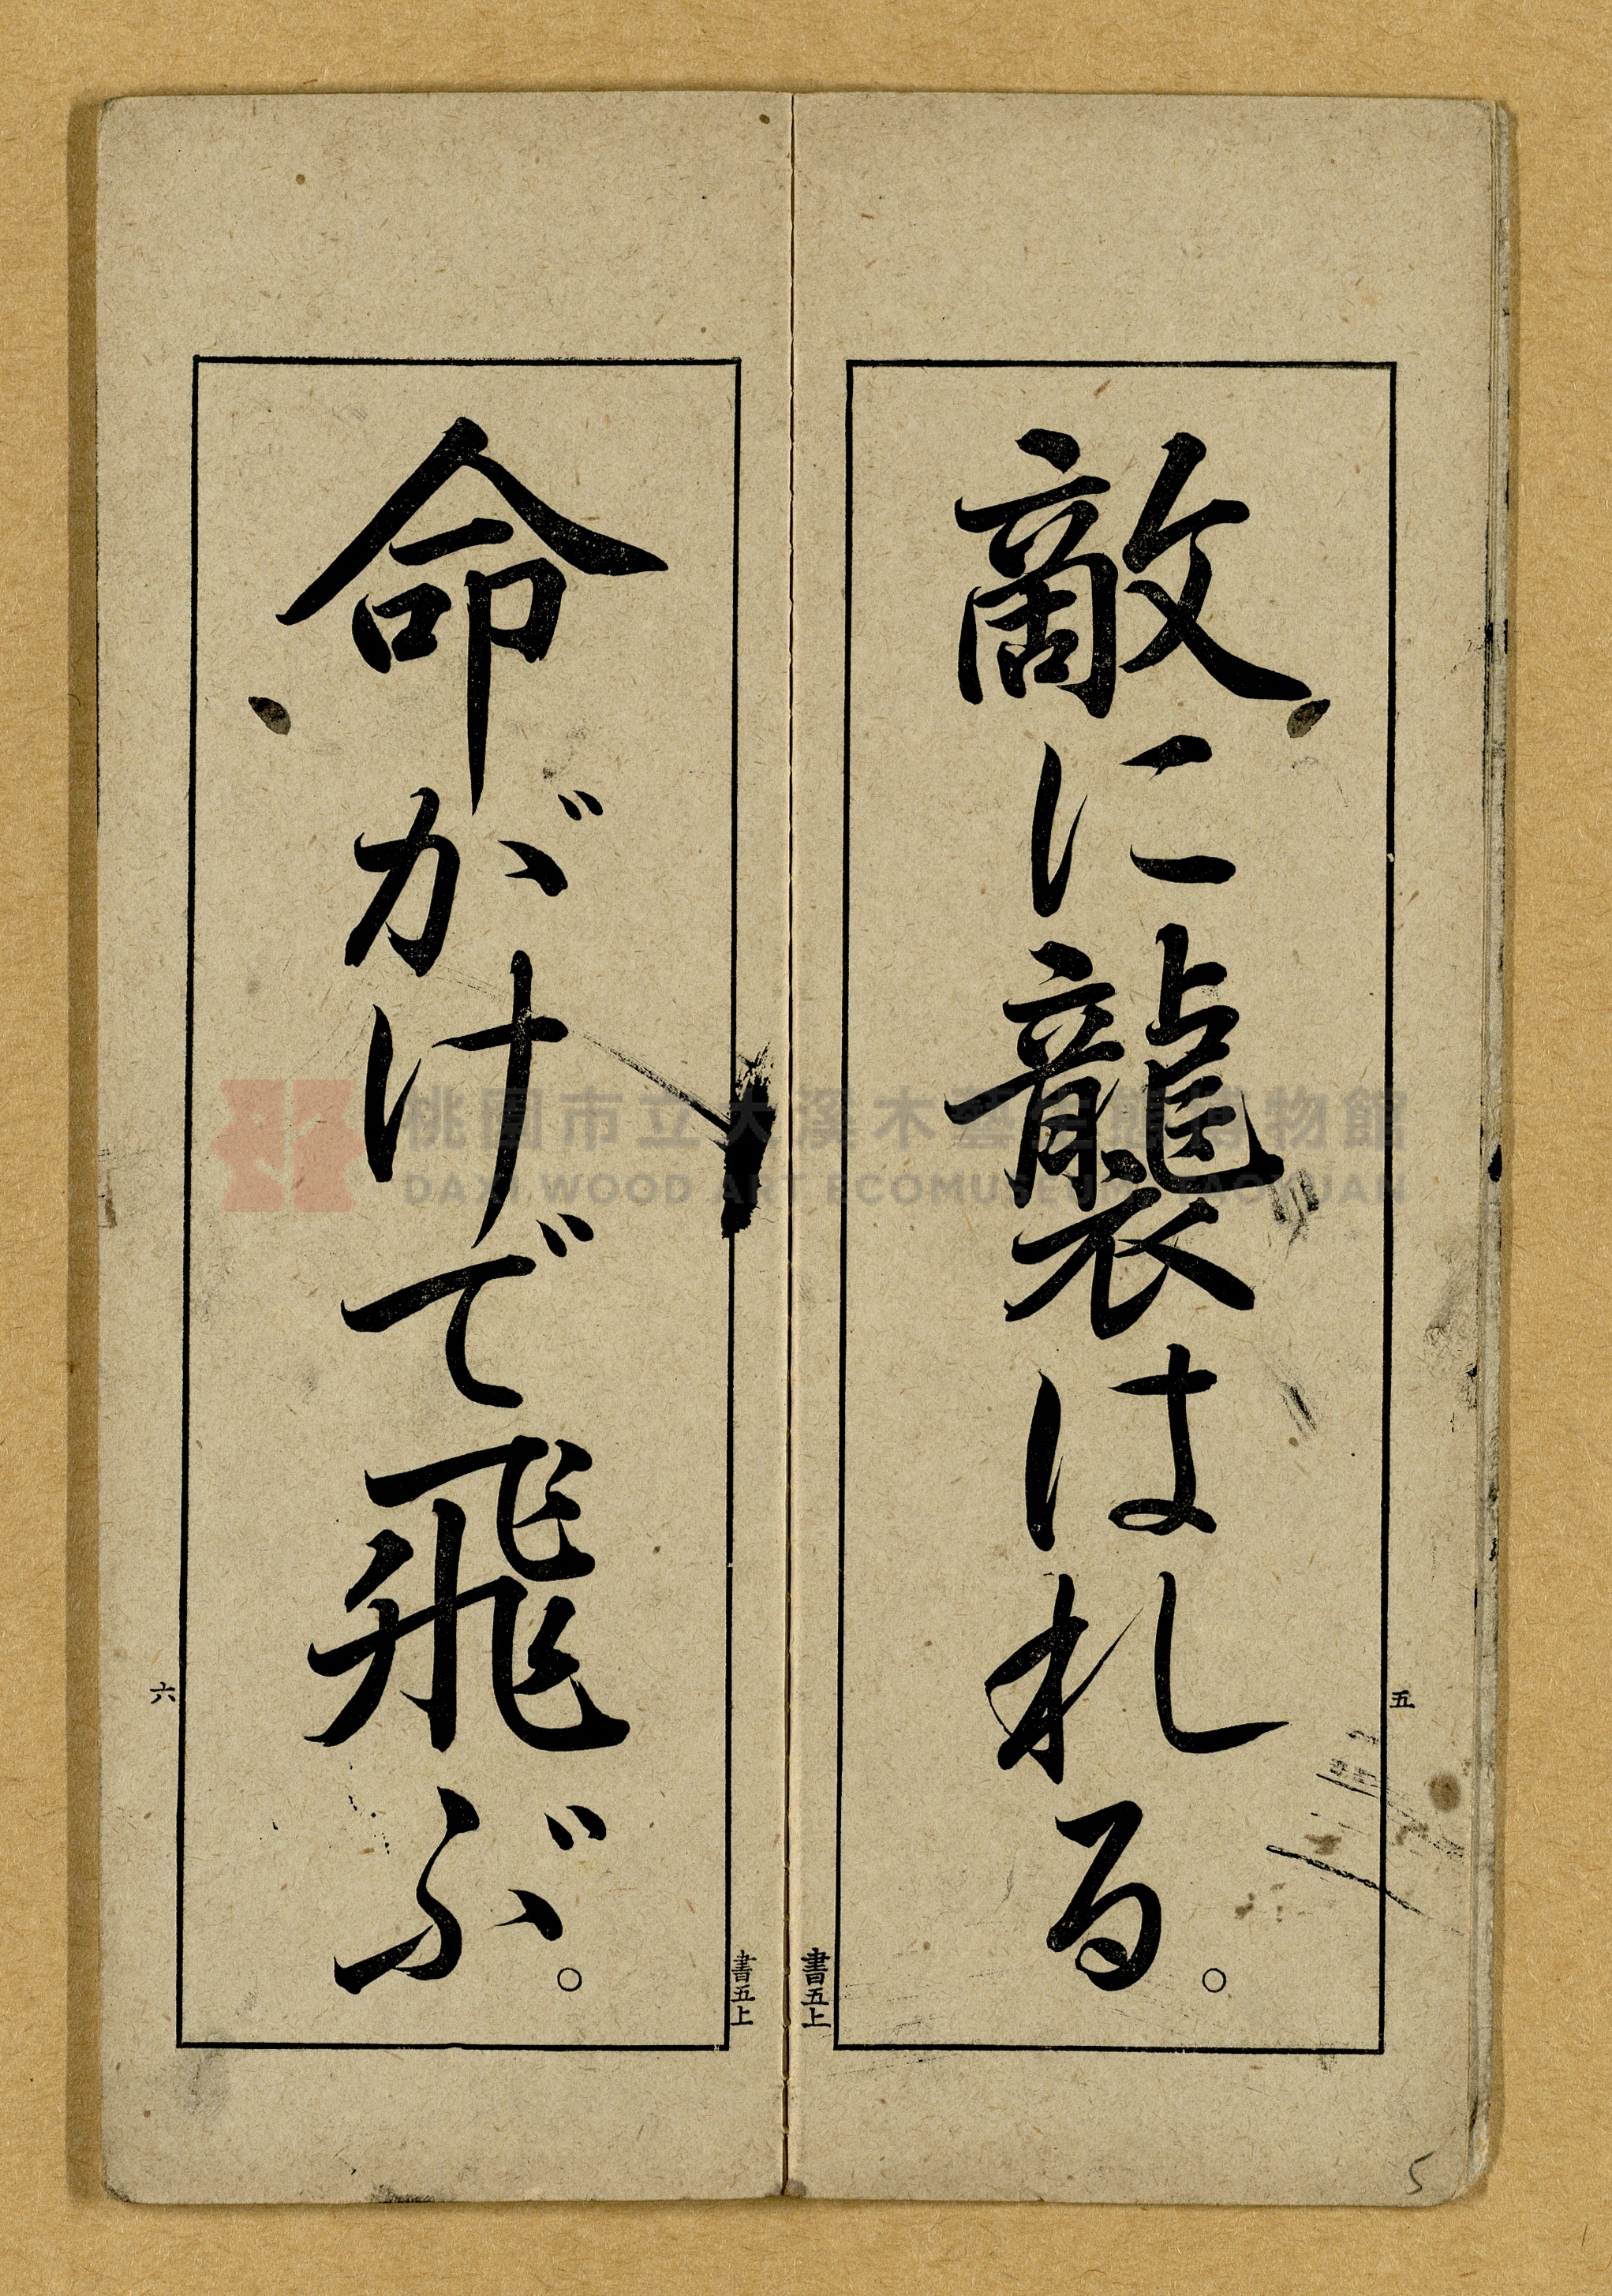 敵に襲はれる。
五
書五上
命がけで飛ぶ。
六
書五上
桃園市立大溪木藝生態博物館
DAXI WOOD ART ECOMUSEUM, TAOYUAN
5